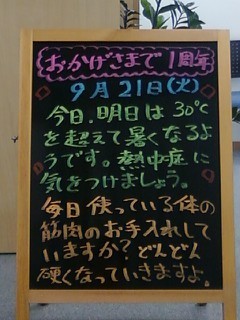 おかげさまで1周年
9月21日(火)
今日、明日は30℃
を超えて暑くなるよ
うです。熱中症に
気をつけましょう。
毎日使っている体の
筋肉のお手入れして
いますか?どんどん
硬くなっていきますよ。